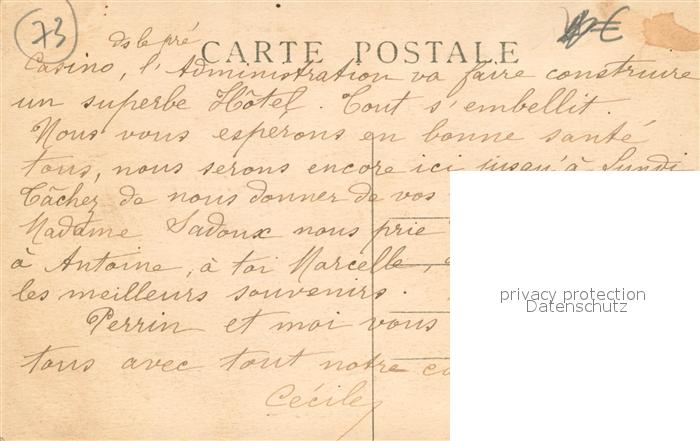 73
ds le pré
CARTE POSTALE
Casino, l'Administration va faire construire
un superbe Hôtel. Tout s'embellit.
Nous vous esperons en bonne santé
tous, nous serons encore ici jusqu'à Lundi
Tâchez de nous donner de vos
Madame Sadoux nous prie
à Antoine, à toi Marcelle,
les meilleurs souvenirs.
Perrin et moi vous
tous avec tout notre
Cécile
privacy protection
Datenschutz